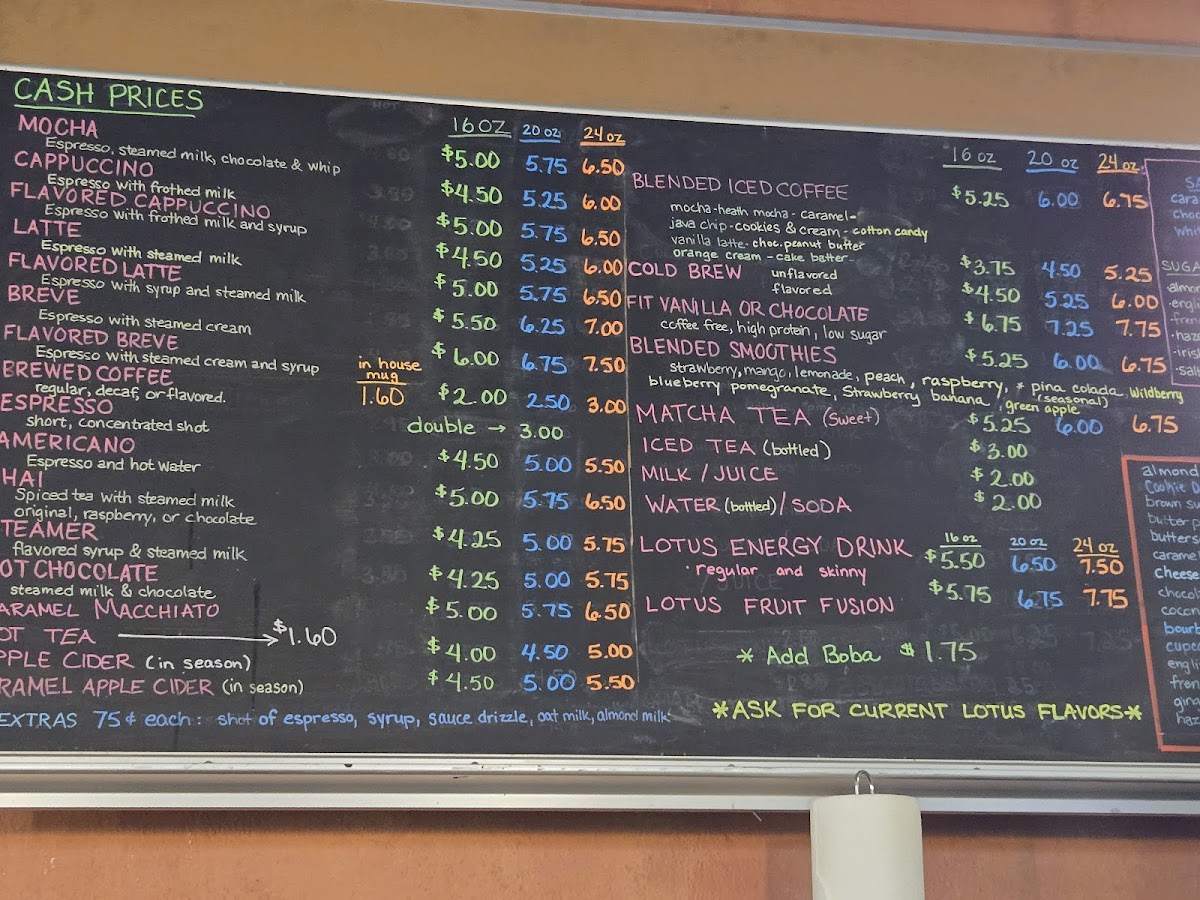 CASH PRICES
16 OZ 20 OZ 24 OZ
MOCHA $5.00 5.75 6.50
Espresso, steamed milk, chocolate & whip
CAPPUCCINO $4.50 5.25 6.00
Espresso with frothed milk
FLAVORED CAPPUCCINO $5.00 5.75 6.50
Espresso with frothed milk and syrup
LATTE $4.50 5.25 6.00
Espresso with steamed milk
FLAVORED LATTE $5.00 5.75 6.50
Espresso with syrup and steamed milk
BREVE $5.50 6.25 7.00
Espresso with steamed cream
FLAVORED BREVE $6.00 6.75 7.50
Espresso with steamed cream and syrup
in house
mug
BREWED COFFEE 1.60 $2.00 2.50 3.00
regular, decaf, or flavored.
ESPRESSO double → 3.00
short, concentrated shot
AMERICANO $4.50 5.00 5.50
Espresso and hot water
HAI $5.00 5.75 6.50
Spiced tea with steamed milk
original, raspberry, or chocolate
TEAMER $4.25 5.00 5.75
flavored syrup & steamed milk
OT CHOCOLATE $4.25 5.00 5.75
steamed milk & chocolate
ARAMEL MACCHIATO $5.00 5.75 6.50
OT TEA → $1.60
PPLE CIDER (in season) $4.00 4.50 5.00
RAMEL APPLE CIDER (in season) $4.50 5.00 5.50
EXTRAS 75¢ each: shot of espresso, syrup, sauce drizzle, oat milk, almond milk
16 OZ 20 OZ 24 OZ
BLENDED ICED COFFEE $5.25 6.00 6.75
mocha-heath mocha-caramel-
java chip-cookies & cream-cotton candy
vanilla latte-choc. peanut butter
orange cream-cake batter-
COLD BREW unflavored $3.75 4.50 5.25
flavored $4.50 5.25 6.00
FIT VANILLA OR CHOCOLATE $6.75 7.25 7.75
coffee free, high protein, low sugar
BLENDED SMOOTHIES $5.25 6.00 6.75
strawberry, mango, lemonade, peach, raspberry, * pina colada, wildberry
(seasonal)
blueberry pomegranate, Strawberry banana, green apple
MATCHA TEA (Sweet) $5.25 6.00 6.75
ICED TEA (bottled) $3.00
MILK / JUICE $2.00
WATER (bottled) / SODA $2.00
16 oz 20 oz 24 oz
LOTUS ENERGY DRINK $5.50 6.50 7.50
· regular and skinny
LOTUS FRUIT FUSION $5.75 6.75 7.75
* Add Boba $1.75
*ASK FOR CURRENT LOTUS FLAVORS*
SA
cara
choc
whit
SUGA
almon
-eng
-fren
-haze
-iris
-salt
almond
Cookie D
brown s
butter
buttersc
caramel
cheese
chocol
cocon
bourb
cupca
engli
fren
ging
haz